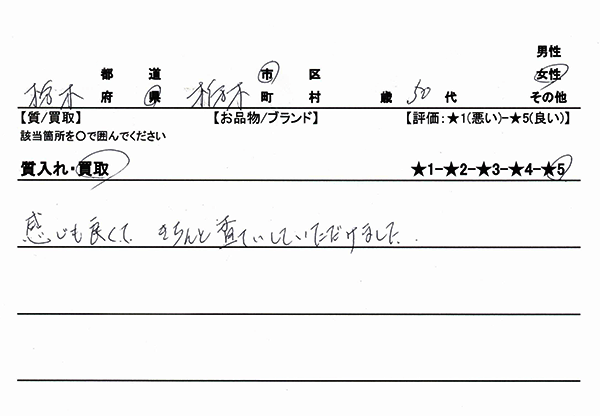 男性
都 道 市 区 女性
栃木 府 県 栃木 町 村 歳 50 代 その他
【質/買取】 【お品物/ブランド】 【評価:★1(悪い)-★5(良い)】
該当箇所を〇で囲んでください
質入れ・買取 ★1-★2-★3-★4-★5
感じも良くて きちんと査ていしていただけました.